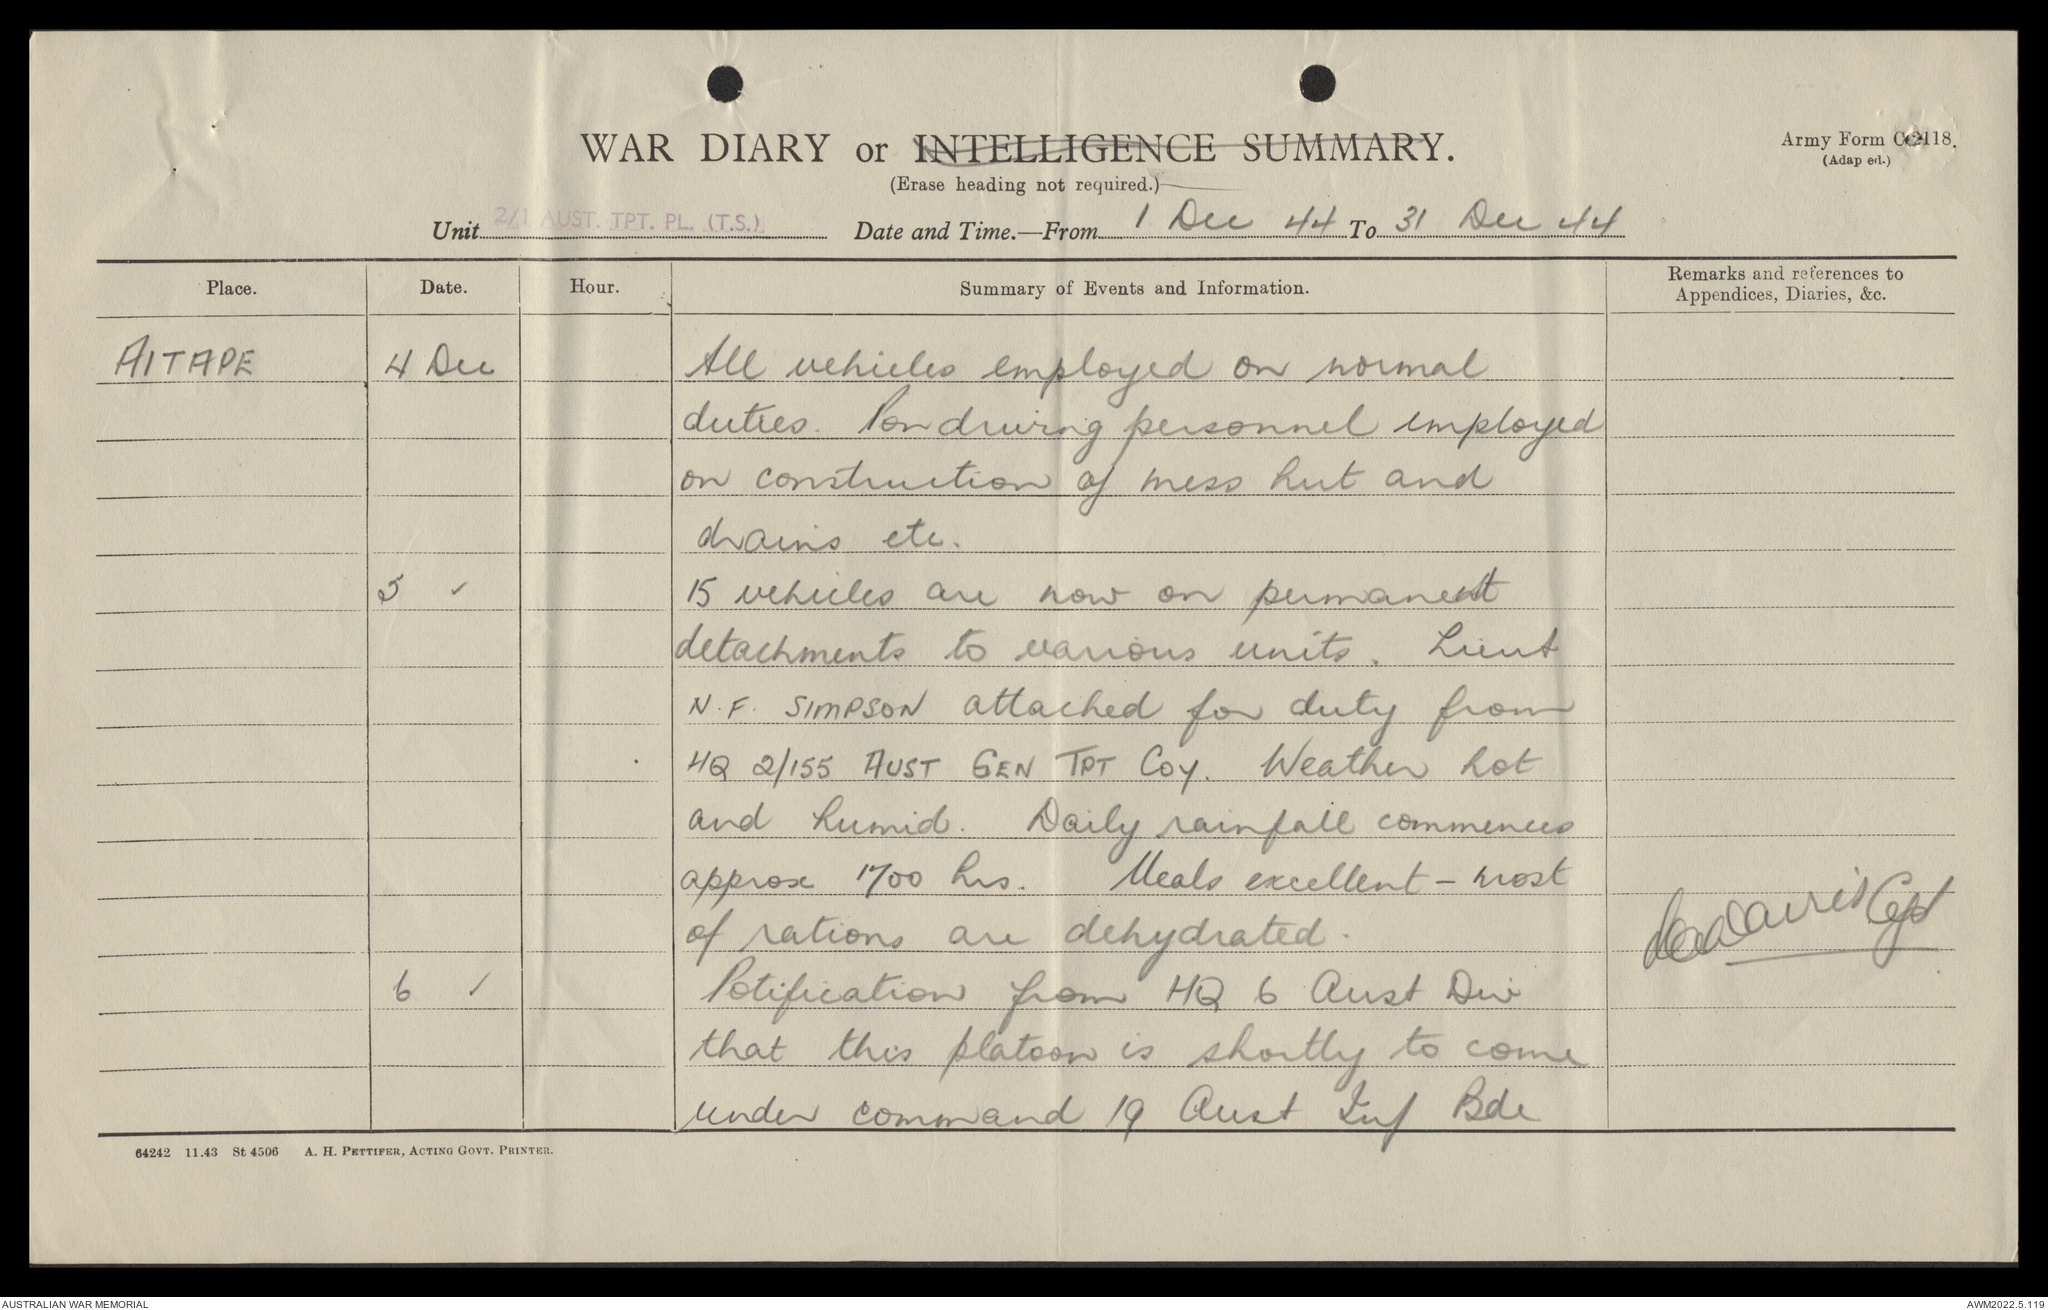 WAR DIARY or INTELLIGENCE SUMMARY.
(Erase heading not required.)
Army Form C 2118.
(Adap ed.)
Unit 2/1 AUST. TPT. PL. (T.S.) Date and Time.—From 1 Dec 44 To 31 Dec 44
Place. Date. Hour. Summary of Events and Information. Remarks and references to Appendices, Diaries, &c.
AITAPE 4 Dec All vehicles employed on normal
duties. Non driving personnel employed
on construction of mess hut and
drains etc.
5 " 15 vehicles are now on permanent
detachments to various units. Lieut
N.F. SIMPSON attached for duty from
HQ 2/155 AUST GEN TPT Coy. Weather hot
and humid. Daily rainfall commences
approx 1700 hrs. Meals excellent - most
of rations are dehydrated.
Capt
6 " Notification from HQ 6 Aust Div
that this platoon is shortly to come
under command 19 Aust Inf Bde
64242 11.43 St 4506 A. H. PETTIFER, ACTING GOVT. PRINTER.
AUSTRALIAN WAR MEMORIAL
AWM2022.5.119